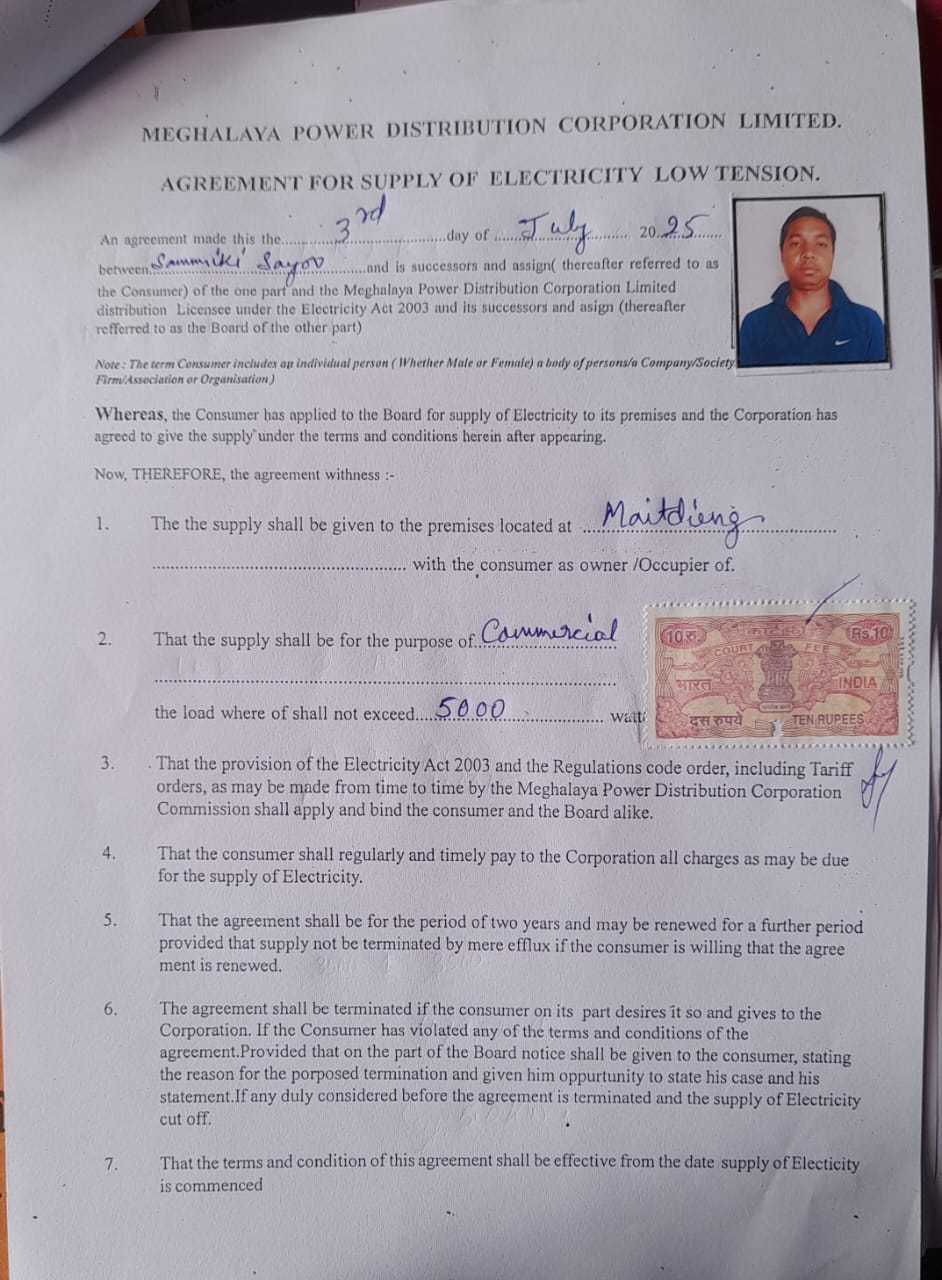 MEGHALAYA POWER DISTRIBUTION CORPORATION LIMITED.
AGREEMENT FOR SUPPLY OF ELECTRICITY LOW TENSION.
An agreement made this the..............3rd......................day of ......July.......... 20.25......
between.Sammiki Sayoo.........and is successors and assign( thereafter referred to as
the Consumer) of the one part and the Meghalaya Power Distribution Corporation Limited
distribution Licensee under the Electricity Act 2003 and its successors and asign (thereafter
refferred to as the Board of the other part)
Note : The term Consumer includes an individual person ( Whether Male or Female) a body of persons/a Company/Society
Firm/Association or Organisation)
Whereas, the Consumer has applied to the Board for supply of Electricity to its premises and the Corporation has
agreed to give the supply under the terms and conditions herein after appearing.
Now, THEREFORE, the agreement withness :-
1. The the supply shall be given to the premises located at ....Maitdieng..................
................................................ with the consumer as owner /Occupier of.
2. That the supply shall be for the purpose of.Commercial
....................................................................................
the load where of shall not exceed....5000..................... watt
10 रु. कोर्ट फीस Rs.10
COURT FEE
भारत INDIA
दस रुपये TEN RUPEES
3. That the provision of the Electricity Act 2003 and the Regulations code order, including Tariff
orders, as may be made from time to time by the Meghalaya Power Distribution Corporation
Commission shall apply and bind the consumer and the Board alike.
4. That the consumer shall regularly and timely pay to the Corporation all charges as may be due
for the supply of Electricity.
5. That the agreement shall be for the period of two years and may be renewed for a further period
provided that supply not be terminated by mere efflux if the consumer is willing that the agree
ment is renewed.
6. The agreement shall be terminated if the consumer on its part desires it so and gives to the
Corporation. If the Consumer has violated any of the terms and conditions of the
agreement.Provided that on the part of the Board notice shall be given to the consumer, stating
the reason for the porposed termination and given him oppurtunity to state his case and his
statement.If any duly considered before the agreement is terminated and the supply of Electricity
cut off.
7. That the terms and condition of this agreement shall be effective from the date supply of Electicity
is commenced